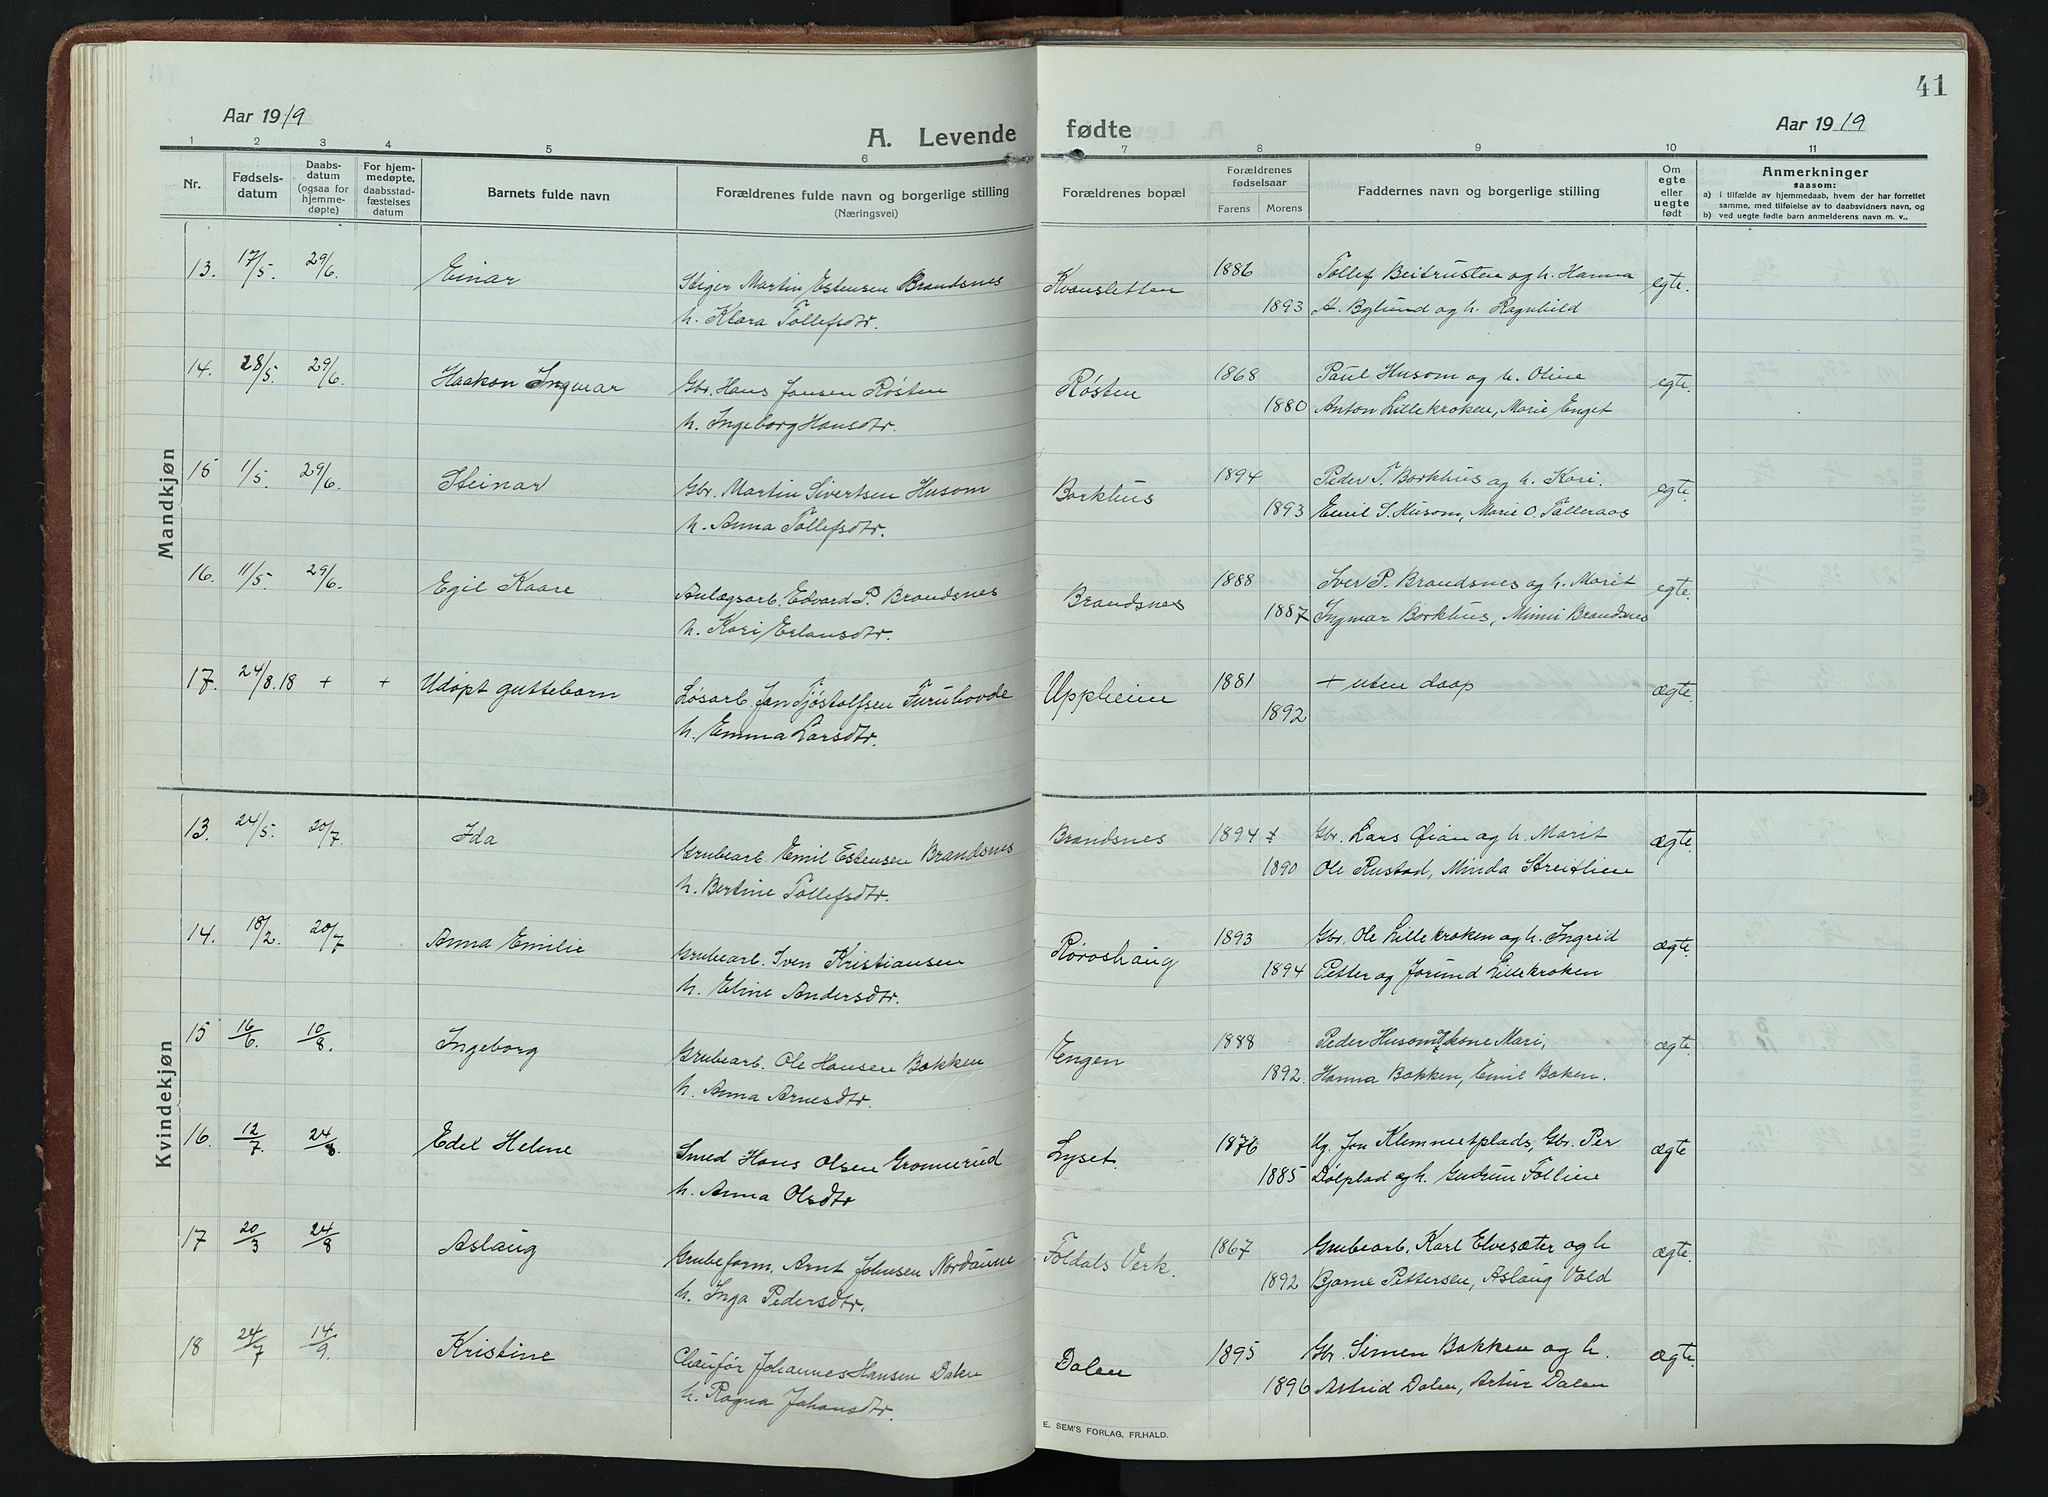 41
Aar 1919
A. Levende fødte
Aar 1919
1 2 3 4 5 6 7 8 9 10 11
Nr.
Fødsels-
datum
Daabs-
datum
(ogsaa for
hjemme-
døpte)
For hjem-
medøpte,
daabsstad-
fæstelses
datum
Barnets fulde navn
Forældrenes fulde navn og borgerlige stilling
(Næringsvei)
Forældrenes bopæl
Forældrenes
fødselsaar
Farens Morens
Faddernes navn og borgerlige stilling
Om
egte
eller
uegte
født
Anmerkninger
saasom:
a) i tilfælde av hjemmedaab, hvem der har forrettet
samme, med tilføielse av to daabsvidners navn, og
b) ved uegte fødte barn anmelderens navn m. v..
Mandkjøn
13. 17/5. 29/6. Einar Stiger Martin Estensen Brandsnes Kvansletten 1886 Tollef Beitrusten og h. Hanna egte.
h. Klara Tollefsdtr. 1893 A. Bylund og h. Ragnhild
14. 28/5. 29/6. Haakon Ingmar Gbr. Hans Jonsen Røsten Røsten 1868 Paul Husom og h. Oline egte.
h. Ingeborg Hansdtr. 1880 Anton Lillekroken, Marie Enget
15 1/5. 29/6. Steinar Gbr. Martin Sivertsen Husom Borkhus 1894 Peder T. Borkhus og h. Kari. egte.
h. Anna Tollefsdtr. 1893 Emil S. Husom, Marie O. Tølleraas
16. 11/5. 29/6. Egil Kaare Anlægsarb. Edvard P. Brandsnes Brandsnes 1888 Iver P. Brandsnes og h. Marit egte.
h. Kari Erlansdtr. 1887 Ingmar Borkhus, Mimi Brandsnes
17. 24/8.18 + + Udøpt guttebarn Løsarb. Jon Tjøstolfsen Furuhovde Uppheim 1881 + uten daap ægte.
h. Emma Larsdtr. 1892
Kvindekjøn
13. 24/5. 20/7. Ida Grubearb. Emil Estensen Brandsnes Brandsnes 1894 Gbr. Lars Øian og h. Marit ægte.
h. Bertine Tollefsdtr. 1890 Ole Rustad, Minda Streitlien
14. 18/2. 20/7 Anna Emilie Grubearb. Sven Kristiansen Røroshaug 1893 Gbr. Ole Lillekroken og h. Ingrid ægte.
h. Eline Andersdtr. 1894 Petter og Jorund Lillekroken
15 16/6. 10/8. Ingeborg Grubearb. Ole Hansen Bakken Engen 1888 Peder Husom & kone Mari, ægte.
h. Anna Arnesdtr. 1892. Hanna Bakken, Emil Baken.
16. 12/7. 24/8. Edel Helene Smed Hans Olsen Gronnerud Lyset. 1876 Ug. Jon Klemmetplads, Gbr. Per ægte
h. Anna Olsdtr 1885 Dølplad og h. Gudrun Follien
17 20/3 24/8 Aslaug Grubeform. Arnt Johnsen Nordaune Foldals Verk. 1867 Grubearb. Karl Elvesæter og h ægte.
h. Inga Pedersdtr. 1892 Bjarne Pettersen, Aslaug Vold
18 24/7 14/9. Kristine Chauför Johannes Hansen Dalen Dalen 1895 Gbr. Simen Bakken og h. ægte.
h. Ragna Johansdtr. 1896 Astrid Dalen, Artur Dalen
E. SEM'S FORLAG, FR.HALD.